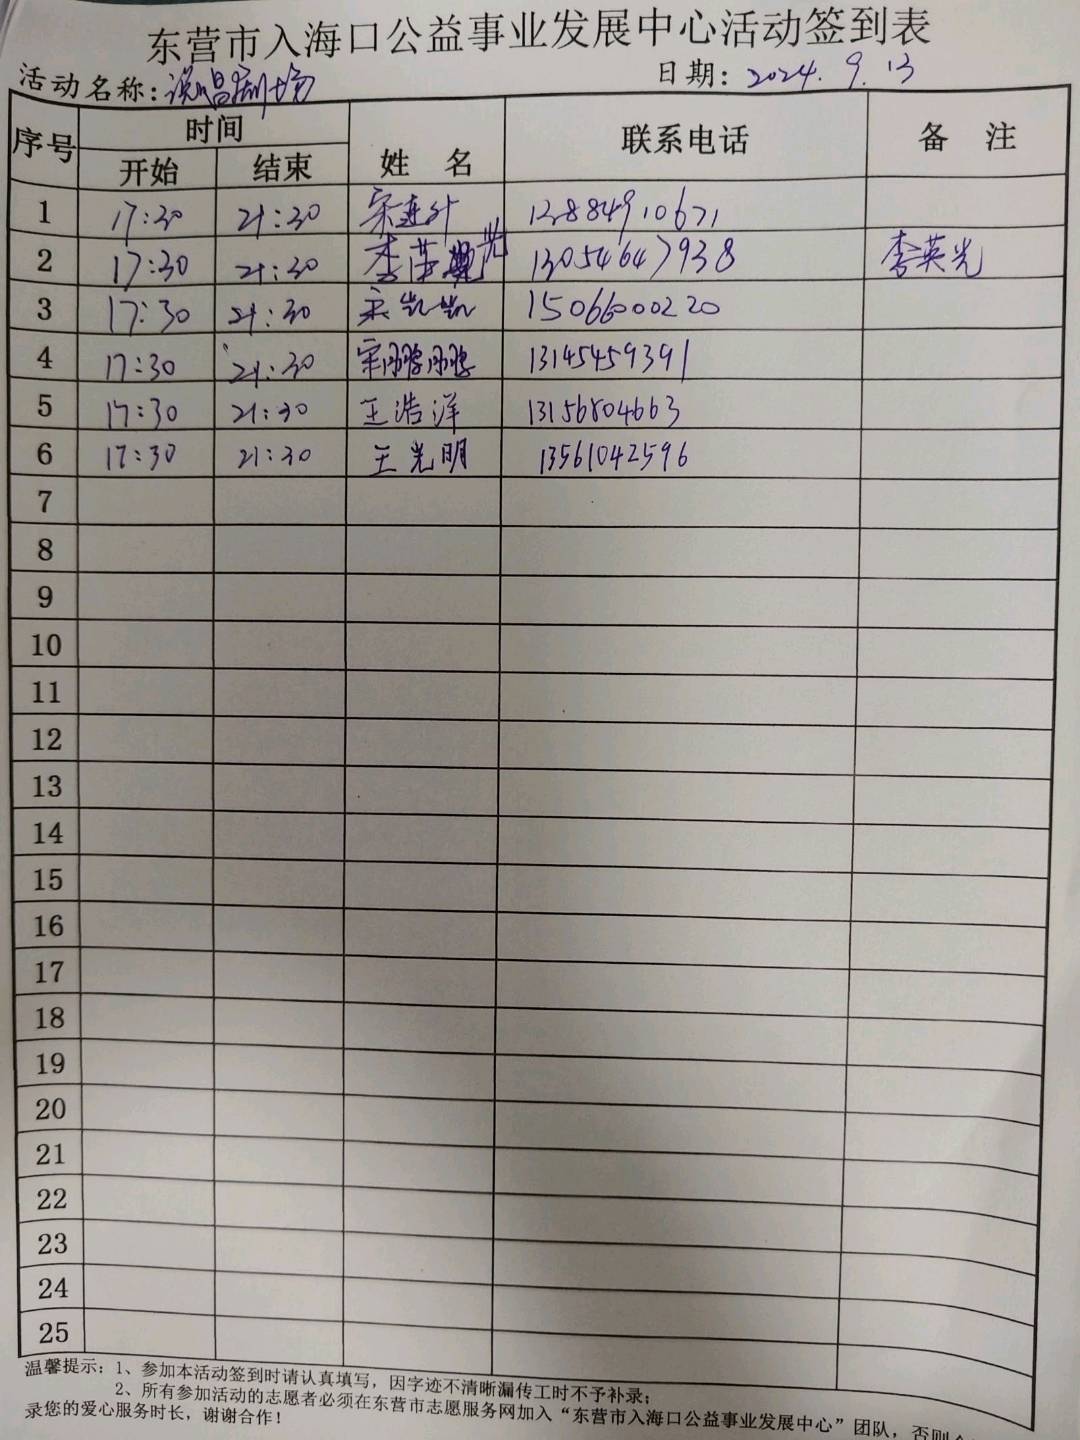 东营市入海口公益事业发展中心活动签到表
活动名称：说唱剧场 日期：2024.9.13
序号 时间 姓 名 联系电话 备 注
开始 结束
1 17:30 21:30 宋连升 13884910671
2 17:30 21:30 李英光 13054647938 李英光
3 17:30 21:30 宋凯凯 15066000220
4 17:30 21:30 宋鹏鹏 13145459391
5 17:30 21:30 王浩洋 13156804663
6 17:30 21:30 王光明 13561042596
7
8
9
10
11
12
13
14
15
16
17
18
19
20
21
22
23
24
25
温馨提示：1、参加本活动签到时请认真填写，因字迹不清晰漏传工时不予补录；
2、所有参加活动的志愿者必须在东营市志愿服务网加入“东营市入海口公益事业发展中心”团队，否则
录您的爱心服务时长，谢谢合作！